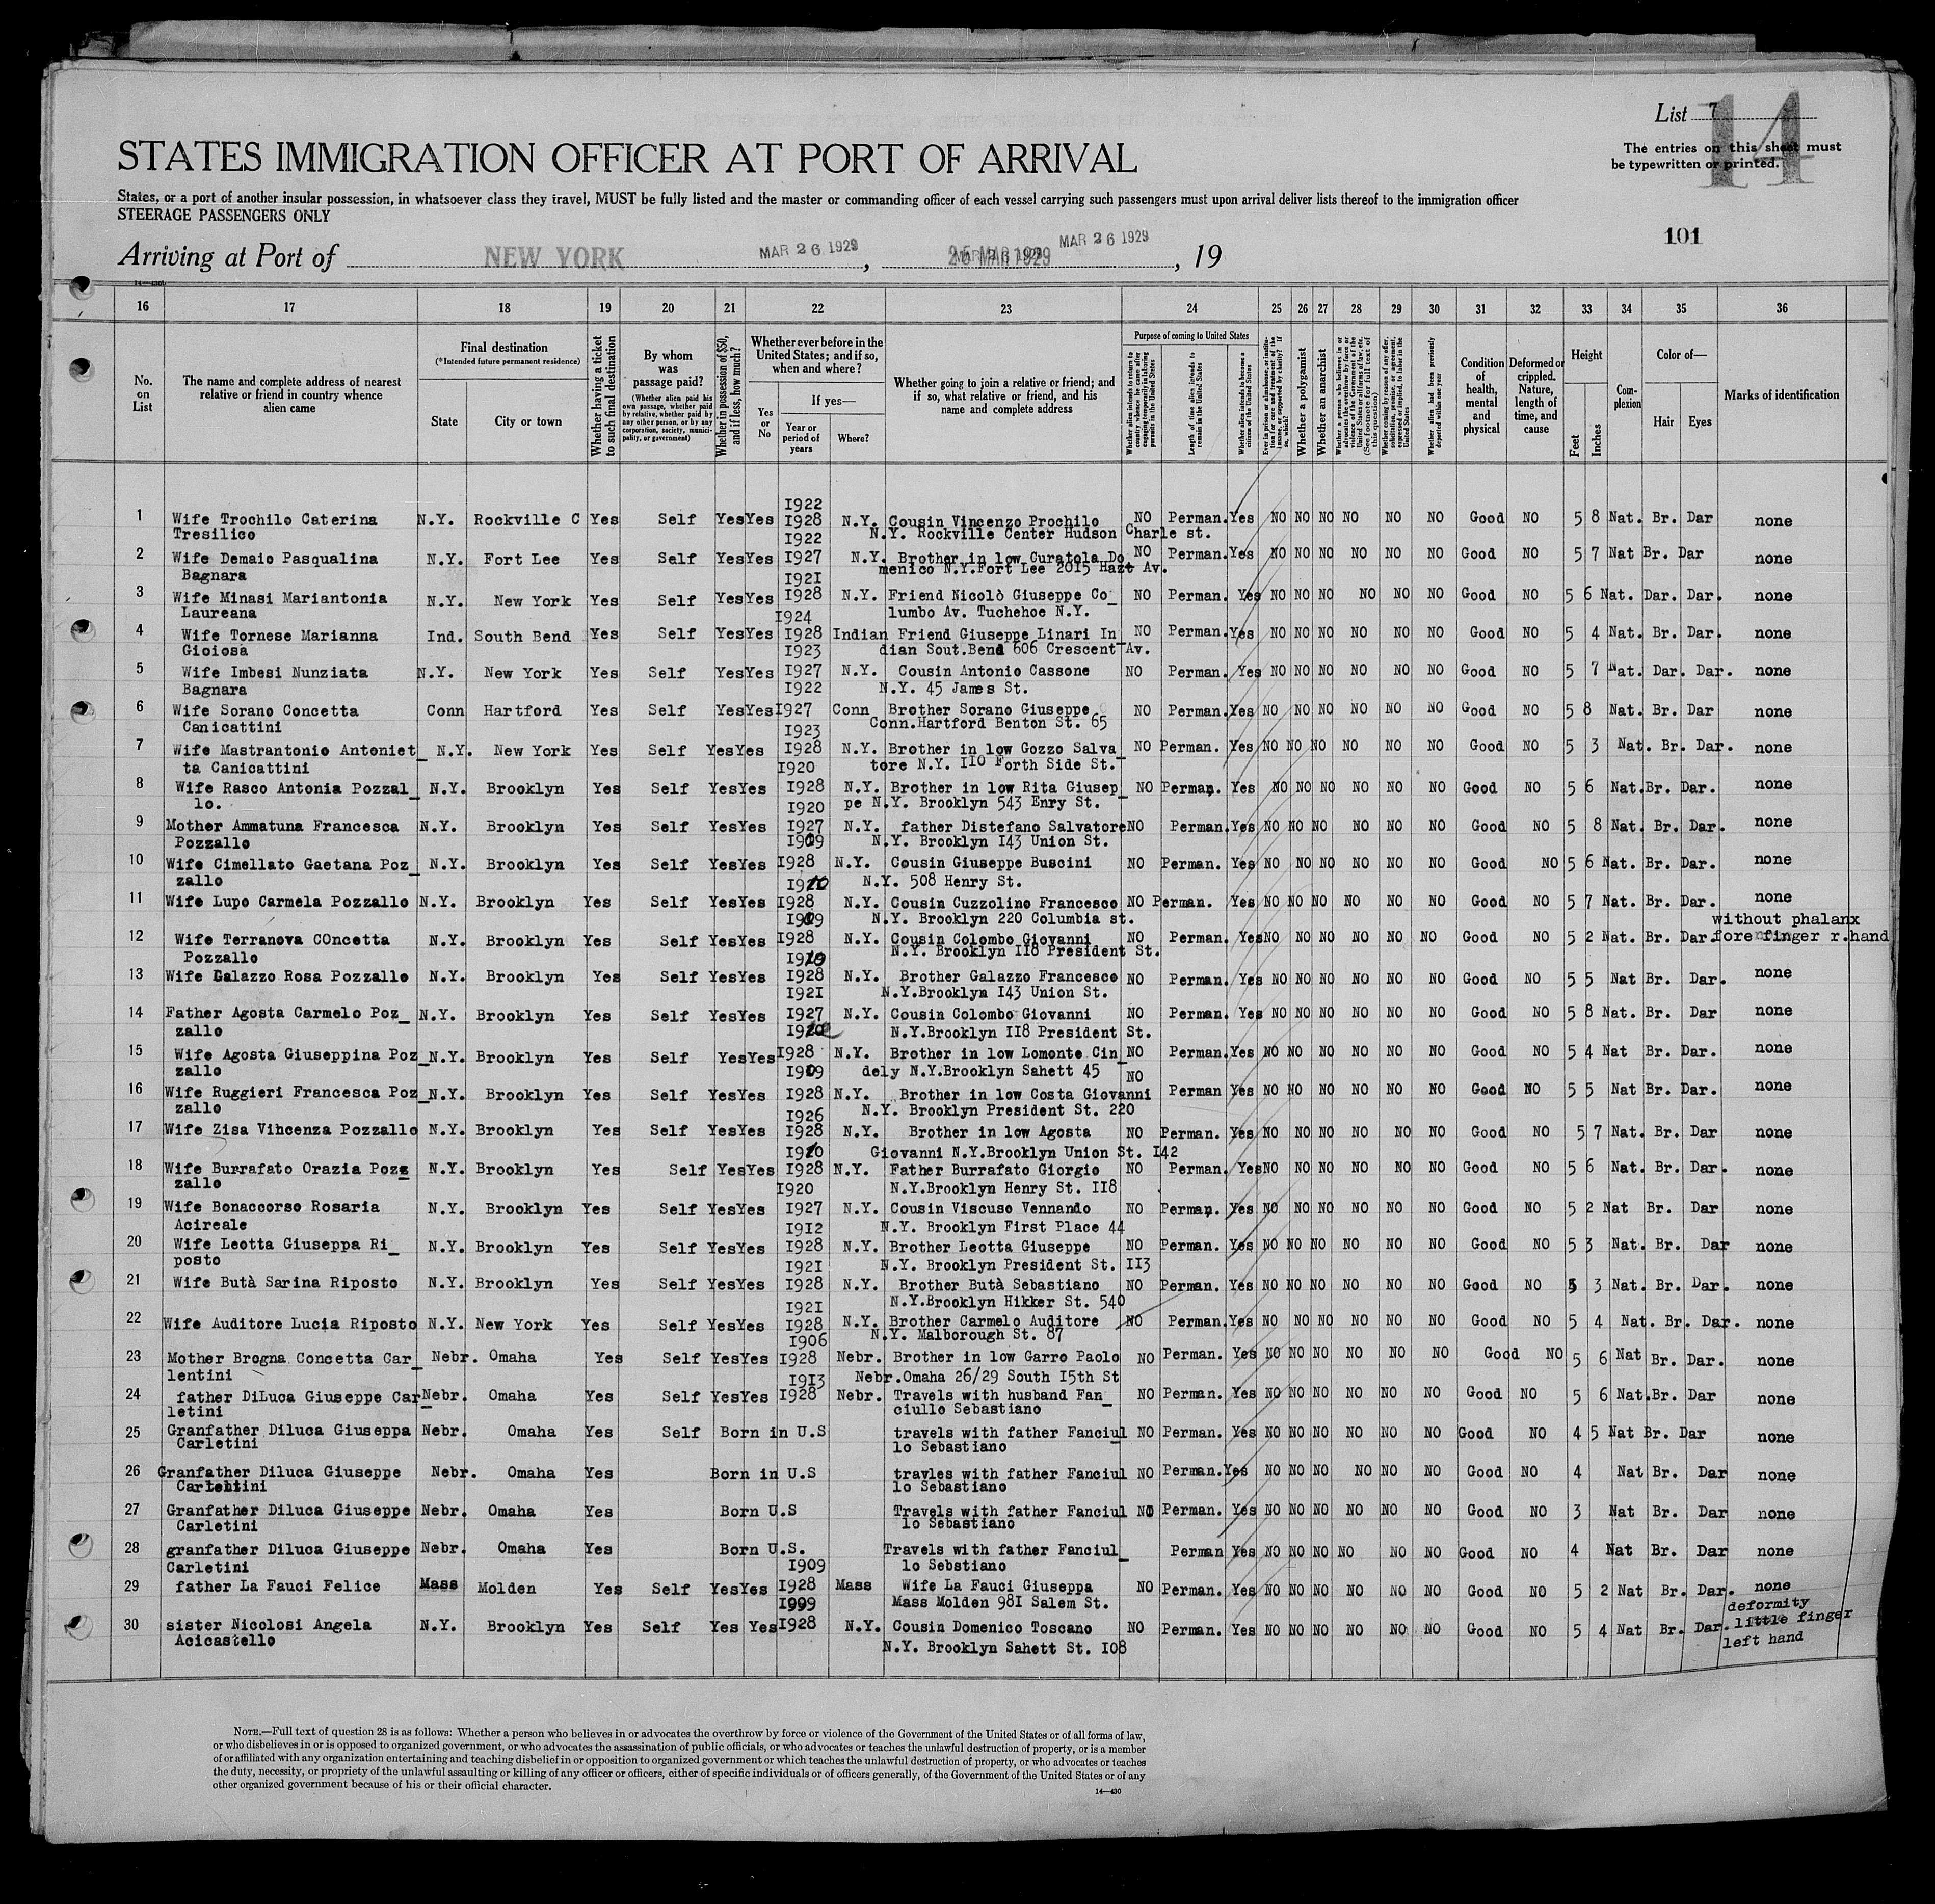 List 7
14
STATES IMMIGRATION OFFICER AT PORT OF ARRIVAL
The entries on this sheet must
be typewritten or printed.
States, or a port of another insular possession, in whatsoever class they travel, MUST be fully listed and the master or commanding officer of each vessel carrying such passengers must upon arrival deliver lists thereof to the immigration officer
STEERAGE PASSENGERS ONLY
101
Arriving at Port of NEW YORK MAR 26 1929, 25 MAR 1929 MAR 26 1929, 19
16 17 18 19 20 21 22 23 24 25 26 27 28 29 30 31 32 33 34 35 36
No. on List
The name and complete address of nearest relative or friend in country whence alien came
Final destination
(*Intended future permanent residence)
State
City or town
Whether having a ticket to such final destination
By whom was passage paid?
(Whether alien paid his own passage, whether paid by relative, whether paid by any other person, or by any corporation, society, municipality, or government)
Whether in possession of $50, and if less, how much?
Whether ever before in the United States; and if so, when and where?
Yes or No
If yes—
Year or period of years
Where?
Whether going to join a relative or friend; and if so, what relative or friend, and his name and complete address
Purpose of coming to United States
Whether alien intends to return to country whence he came after engaging temporarily in laboring pursuits in the United States
Length of time alien intends to remain in the United States
Whether alien intends to become a citizen of the United States
Whether a polygamist
Whether an anarchist
Whether alien had been previously deported within one year
Condition of health, mental and physical
Deformed or crippled. Nature, length of time, and cause
Height
Feet
Inches
Complexion
Color of—
Hair
Eyes
Marks of identification
1922
1 Wife Trochilo Caterina N.Y. Rockville C Yes Self Yes Yes 1928 N.Y. Cousin Vincenzo Prochilo NO Perman. Yes NO NO NO NO NO NO Good NO 5 8 Nat. Br. Dar none
Tresilico 1922 N.Y. Rockville Center Hudson Charle st.
2 Wife Demaio Pasqualina N.Y. Fort Lee Yes Self Yes Yes 1927 N.Y. Brother in low Curatola Do NO Perman. Yes NO NO NO NO NO NO Good NO 5 7 Nat Br. Dar none
Bagnara 1921 menico N.Y.Fort Lee 2015 Hazt Av.
3 Wife Minasi Mariantonia N.Y. New York Yes Self Yes Yes 1928 N.Y. Friend Nicolò Giuseppe Co_ NO Perman. Yes NO NO NO NO NO NO Good NO 5 6 Nat. Dar. Dar. none
Laureana 1924 lumbo Av. Tuchehoe N.Y.
4 Wife Tornese Marianna Ind. South Bend Yes Self Yes Yes 1928 Indian Friend Giuseppe Linari In_ NO Perman. Yes NO NO NO NO NO NO Good NO 5 4 Nat. Br. Dar. none
Gioiosa 1923 dian Sout.Bend 606 Crescent Av.
5 Wife Imbesi Nunziata N.Y. New York Yes Self Yes Yes 1927 N.Y. Cousin Antonio Cassone NO Perman. Yes NO NO NO NO NO NO Good NO 5 7 Nat. Dar. Dar. none
Bagnara 1922 N.Y. 45 James St.
6 Wife Sorano Concetta Conn Hartford Yes Self Yes Yes 1927 Conn Brother Sorano Giuseppe NO Perman. Yes NO NO NO NO NO NO Good NO 5 8 Nat. Br. Dar none
Canicattini 1923 Conn.Hartford Benton St. 65
7 Wife Mastrantonio Antoniet_ N.Y. New York Yes Self Yes Yes 1928 N.Y. Brother in low Gozzo Salva_ NO Perman. Yes NO NO NO NO NO NO Good NO 5 3 Nat. Br. Dar. none
ta Canicattini 1920 tore N.Y. 110 Forth Side St.
8 Wife Rasco Antonia Pozzal_ N.Y. Brooklyn Yes Self Yes Yes 1928 N.Y. Brother in low Rita Giusep_ NO Perman. Yes NO NO NO NO NO NO Good NO 5 6 Nat. Br. Dar. none
lo. 1920 pe N.Y. Brooklyn 543 Enry St.
9 Mother Ammatuna Francesca N.Y. Brooklyn Yes Self Yes Yes 1927 N.Y. father Distefano Salvatore NO Perman. Yes NO NO NO NO NO NO Good NO 5 8 Nat. Br. Dar. none
Pozzallo N.Y. Brooklyn 143 Union St.
10 Wife Cimellato Gaetana Poz_ N.Y. Brooklyn Yes Self Yes Yes 1928 N.Y. Cousin Giuseppe Buscini NO Perman. Yes NO NO NO NO NO NO Good NO 5 6 Nat. Br. Dar. none
zallo N.Y. 508 Henry St.
11 Wife Lupo Carmela Pozzallo N.Y. Brooklyn Yes Self Yes Yes 1928 N.Y. Cousin Cuzzolino Francesco NO Perman. Yes NO NO NO NO NO NO Good NO 5 7 Nat. Br. Dar. none
N.Y. Brooklyn 220 Columbia st. without phalanx
12 Wife Terranova COncetta N.Y. Brooklyn Yes Self Yes Yes 1928 N.Y. Cousin Colombo Giovanni NO Perman. Yes NO NO NO NO NO NO Good NO 5 2 Nat. Br. Dar. fore finger r.hand
Pozzallo N.Y. Brooklyn 118 President St.
13 Wife Galazzo Rosa Pozzallo N.Y. Brooklyn Yes Self Yes Yes 1928 N.Y. Brother Galazzo Francesco NO Perman. Yes NO NO NO NO NO NO Good NO 5 5 Nat Br. Dar. none
1921 N.Y.Brooklyn 143 Union St.
14 Father Agosta Carmelo Poz_ N.Y. Brooklyn Yes Self Yes Yes 1927 N.Y. Cousin Colombo Giovanni NO Perman. Yes NO NO NO NO NO NO Good NO 5 8 Nat. Br. Dar none
zallo N.Y.Brooklyn 118 President St.
15 Wife Agosta Giuseppina Poz_ N.Y. Brooklyn Yes Self Yes Yes 1928 N.Y. Brother in low Lomonte Cin_ NO Perman. Yes NO NO NO NO NO NO Good NO 5 4 Nat Br. Dar. none
zallo dely N.Y.Brooklyn Sahett 45
16 Wife Ruggieri Francesca Poz_ N.Y. Brooklyn Yes Self Yes Yes 1928 N.Y. Brother in low Costa Giovanni NO Perman Yes NO NO NO NO NO NO Good NO 5 5 Nat Br. Dar. none
zallo 1926 N.Y. Brooklyn President St. 220
17 Wife Zisa Vihcenza Pozzallo N.Y. Brooklyn Yes Self Yes Yes 1928 N.Y. Brother in low Agosta NO Perman. Yes NO NO NO NO NO NO Good NO 5 7 Nat. Br. Dar none
Giovanni N.Y.Brooklyn Union St. 142
18 Wife Burrafato Orazia Poz_ N.Y. Brooklyn Yes Self Yes Yes 1928 N.Y. Father Burrafato Giorgio NO Perman. Yes NO NO NO NO NO NO Good NO 5 6 Nat. Br. Dar. none
zallo 1920 N.Y.Brooklyn Henry St. 118
19 Wife Bonaccorso Rosaria N.Y. Brooklyn Yes Self Yes Yes 1927 N.Y. Cousin Viscuso Vennando NO Perman. Yes NO NO NO NO NO NO Good NO 5 2 Nat Br. Dar none
Acireale 1912 N.Y. Brooklyn First Place 44
20 Wife Leotta Giuseppa Ri_ N.Y. Brooklyn Yes Self Yes Yes 1928 N.Y. Brother Leotta Giuseppe NO Perman. Yes NO NO NO NO NO NO Good NO 5 3 Nat. Br. Dar none
posto 1921 N.Y. Brooklyn President St. 113
21 Wife Butà Sarina Riposto N.Y. Brooklyn Yes Self Yes Yes 1928 N.Y. Brother Butà Sebastiano NO Perman. Yes NO NO NO NO NO NO Good NO 5 3 Nat. Br. Dar. none
1921 N.Y.Brooklyn Hikker St. 540
22 Wife Auditore Lucia Riposto N.Y. New York Yes Self Yes Yes 1928 N.Y. Brother Carmelo Auditore NO Perman. Yes NO NO NO NO NO NO Good NO 5 4 Nat. Br. Dar. none
1906 N.Y. Malborough St. 87
23 Mother Brogna Concetta Car_ Nebr. Omaha Yes Self Yes Yes 1928 Nebr. Brother in low Garro Paolo NO Perman. Yes NO NO NO NO NO NO Good NO 5 6 Nat Br. Dar. none
lentini 1913 Nebr.Omaha 26/29 South 15th St
24 father DiLuca Giuseppe Car_ Nebr. Omaha Yes Self Yes Yes 1928 Nebr. Travels with husband Fan_ NO Perman. Yes NO NO NO NO NO NO Good NO 5 6 Nat. Br. Dar none
letini ciullo Sebastiano
25 Granfather Diluca Giuseppa Nebr. Omaha Yes Self Born in U.S travels with father Fanciul NO Perman. Yes NO NO NO NO NO NO Good NO 4 5 Nat Br. Dar none
Carletini lo Sebastiano
26 Granfather Diluca Giuseppe Nebr. Omaha Yes Born in U.S travles with father Fanciul NO Perman. Yes NO NO NO NO NO NO Good NO 4 Nat Br. Dar none
lo Sebastiano
27 Granfather Diluca Giuseppe Nebr. Omaha Yes Born U.S Travels with father Fanciul NO Perman. Yes NO NO NO NO NO NO Good NO 3 Nat Br. Dar none
Carletini lo Sebastiano
28 granfather Diluca Giuseppe Nebr. Omaha Yes Born U.S. Travels with father Fanciul_ Perman Yes NO NO NO NO NO NO Good NO 4 Nat Br. Dar none
Carletini 1909 lo Sebstiano
29 father La Fauci Felice Mass Molden Yes Self Yes Yes 1928 Mass Wife La Fauci Giuseppa NO Perman. Yes NO NO NO NO NO NO Good NO 5 2 Nat Br. Dar. none
Mass Molden 981 Salem St. deformity
30 sister Nicolosi Angela N.Y. Brooklyn Yes Self Yes Yes 1928 N.Y. Cousin Domenico Toscano NO Perman. Yes NO NO NO NO NO NO Good NO 5 4 Nat Br. Dar. little finger
Acicastello N.Y. Brooklyn Sahett St. 108 left hand
NOTE.—Full text of question 28 is as follows: Whether a person who believes in or advocates the overthrow by force or violence of the Government of the United States or of all forms of law,
or who disbelieves in or is opposed to organized government, or who advocates the assassination of public officials, or who advocates or teaches the unlawful destruction of property, or is a member
of or affiliated with any organization entertaining and teaching disbelief in or opposition to organized government or which teaches the unlawful destruction of property, or who advocates or teaches
the duty, necessity, or propriety of the unlawful assaulting or killing of any officer or officers, either of specific individuals or of officers generally, of the Government of the United States or of any
other organized government because of his or their official character.
14—430